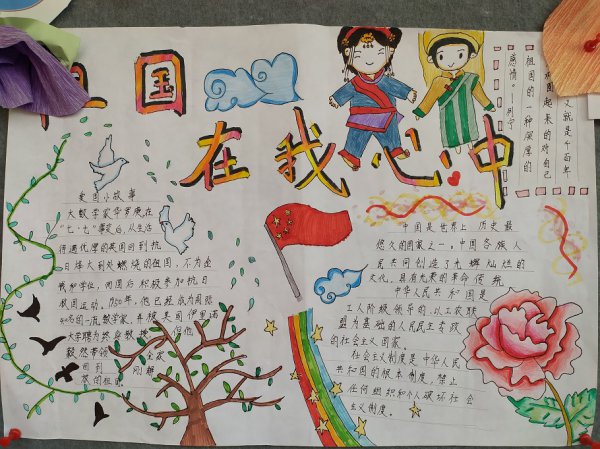 祖国
在我心中
爱国小故事
大数学家华罗庚在
"七·七"事变后,从生活
待遇优厚的美国回到抗
日烽火到处燃烧的祖国,不为金
钱和学位,回国后积极参加抗日
救国运动。1950年,他已经成为国际
知名的一流数学家,并被美国伊里诺
大学聘为终身教授,但他
毅然带领全家
回到刚解
放的祖国。
中国是世界上历史最
悠久的国家之一,中国各族人
民共同创造了光辉灿烂的
文化,具有光荣的革命传统
中华人民共和国是
工人阶级领导的,以工农联
盟为基础的人民民主专政
的社会主义国家。
社会主义制度是中华人民
共和国的根本制度,禁止
任何组织和个人破坏社会
主义制度。
义就是千百年
固起来的对自己
祖国的一种深厚的
感情。——列宁